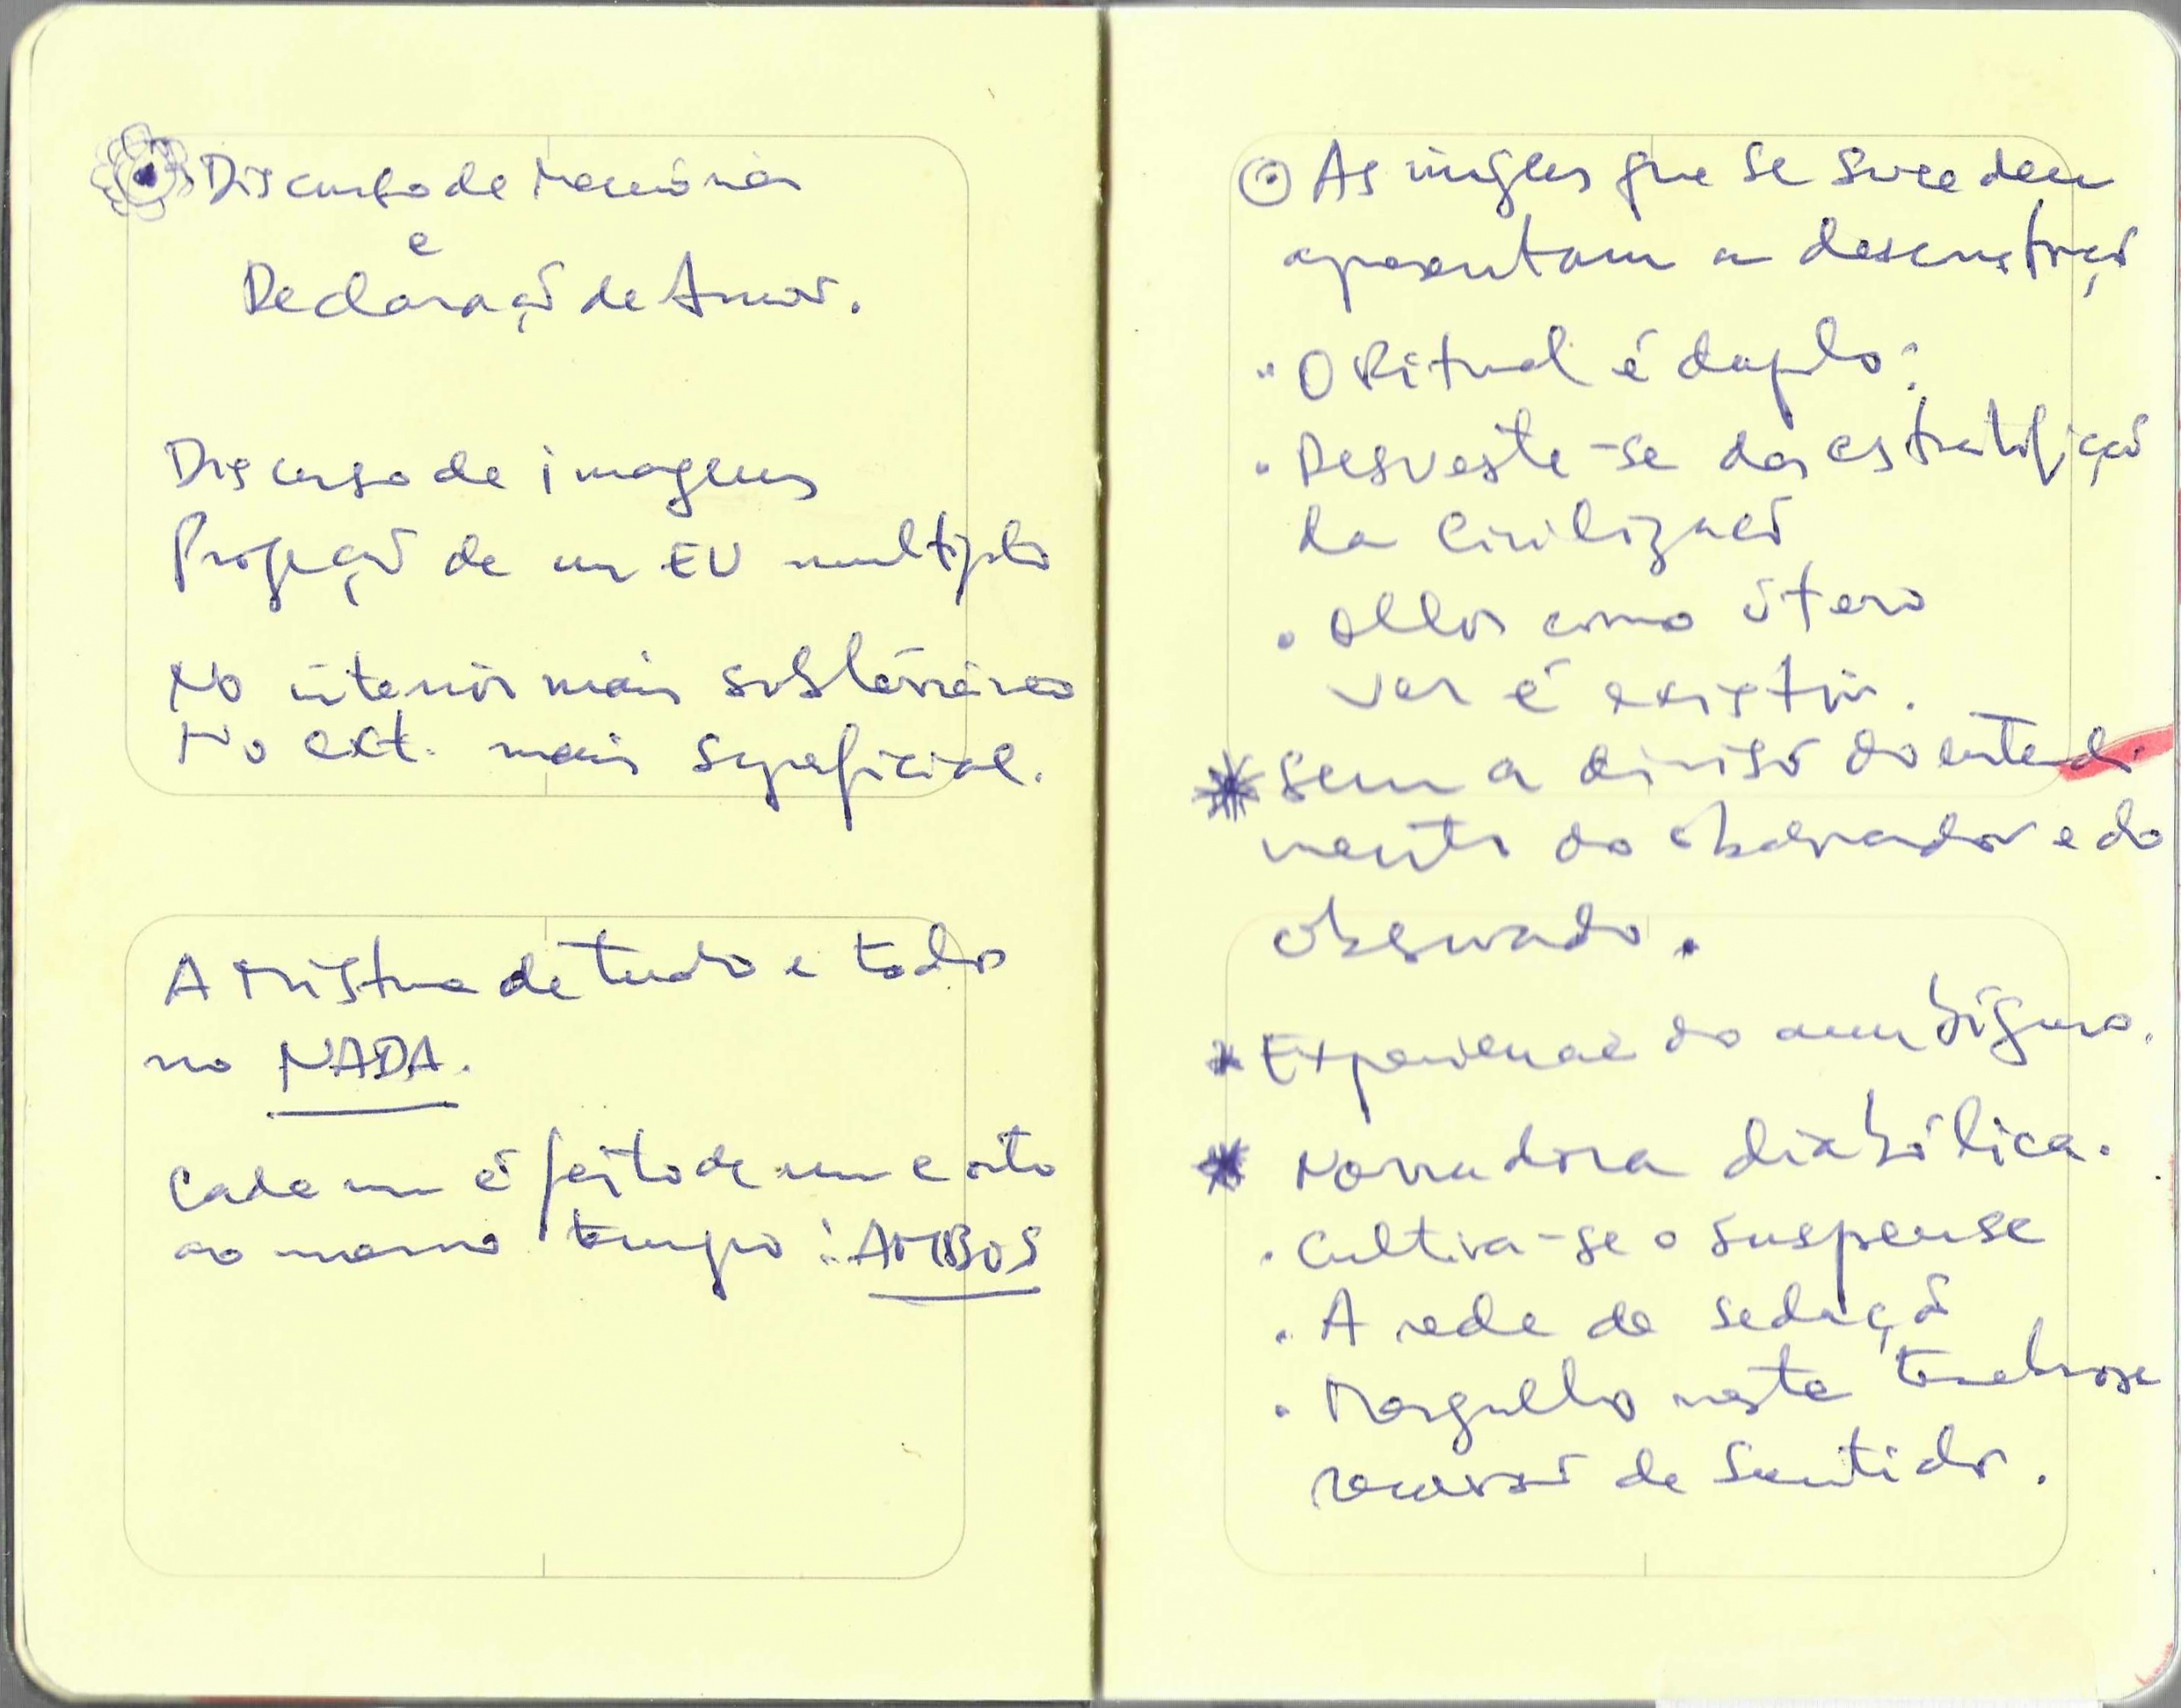 Discurso de Memórias
e
Declaração de Amor.
Discurso de imagens
Projeção de um EU multiplo
No interior mais subterrâneo
No ext. mais superficial.
A Mistura de tudo e todos
no NADA.
Cada um é feito de um e outro
ao mesmo tempo: AMBOS
As que se sucedem
apresentam a desconstrução
O Ritual é duplo:
Desveste-se das estratificação
da Civilização
Olhos como útero
ver é existir.
Sem a divisão do entendi
mento do observador e do
observado.
Experiencia do ambíguo.
Narradora diabólica.
Cultiva-se o suspense
A rede de sedução
Mergulho nesta tenebrosa
de Sentidos.